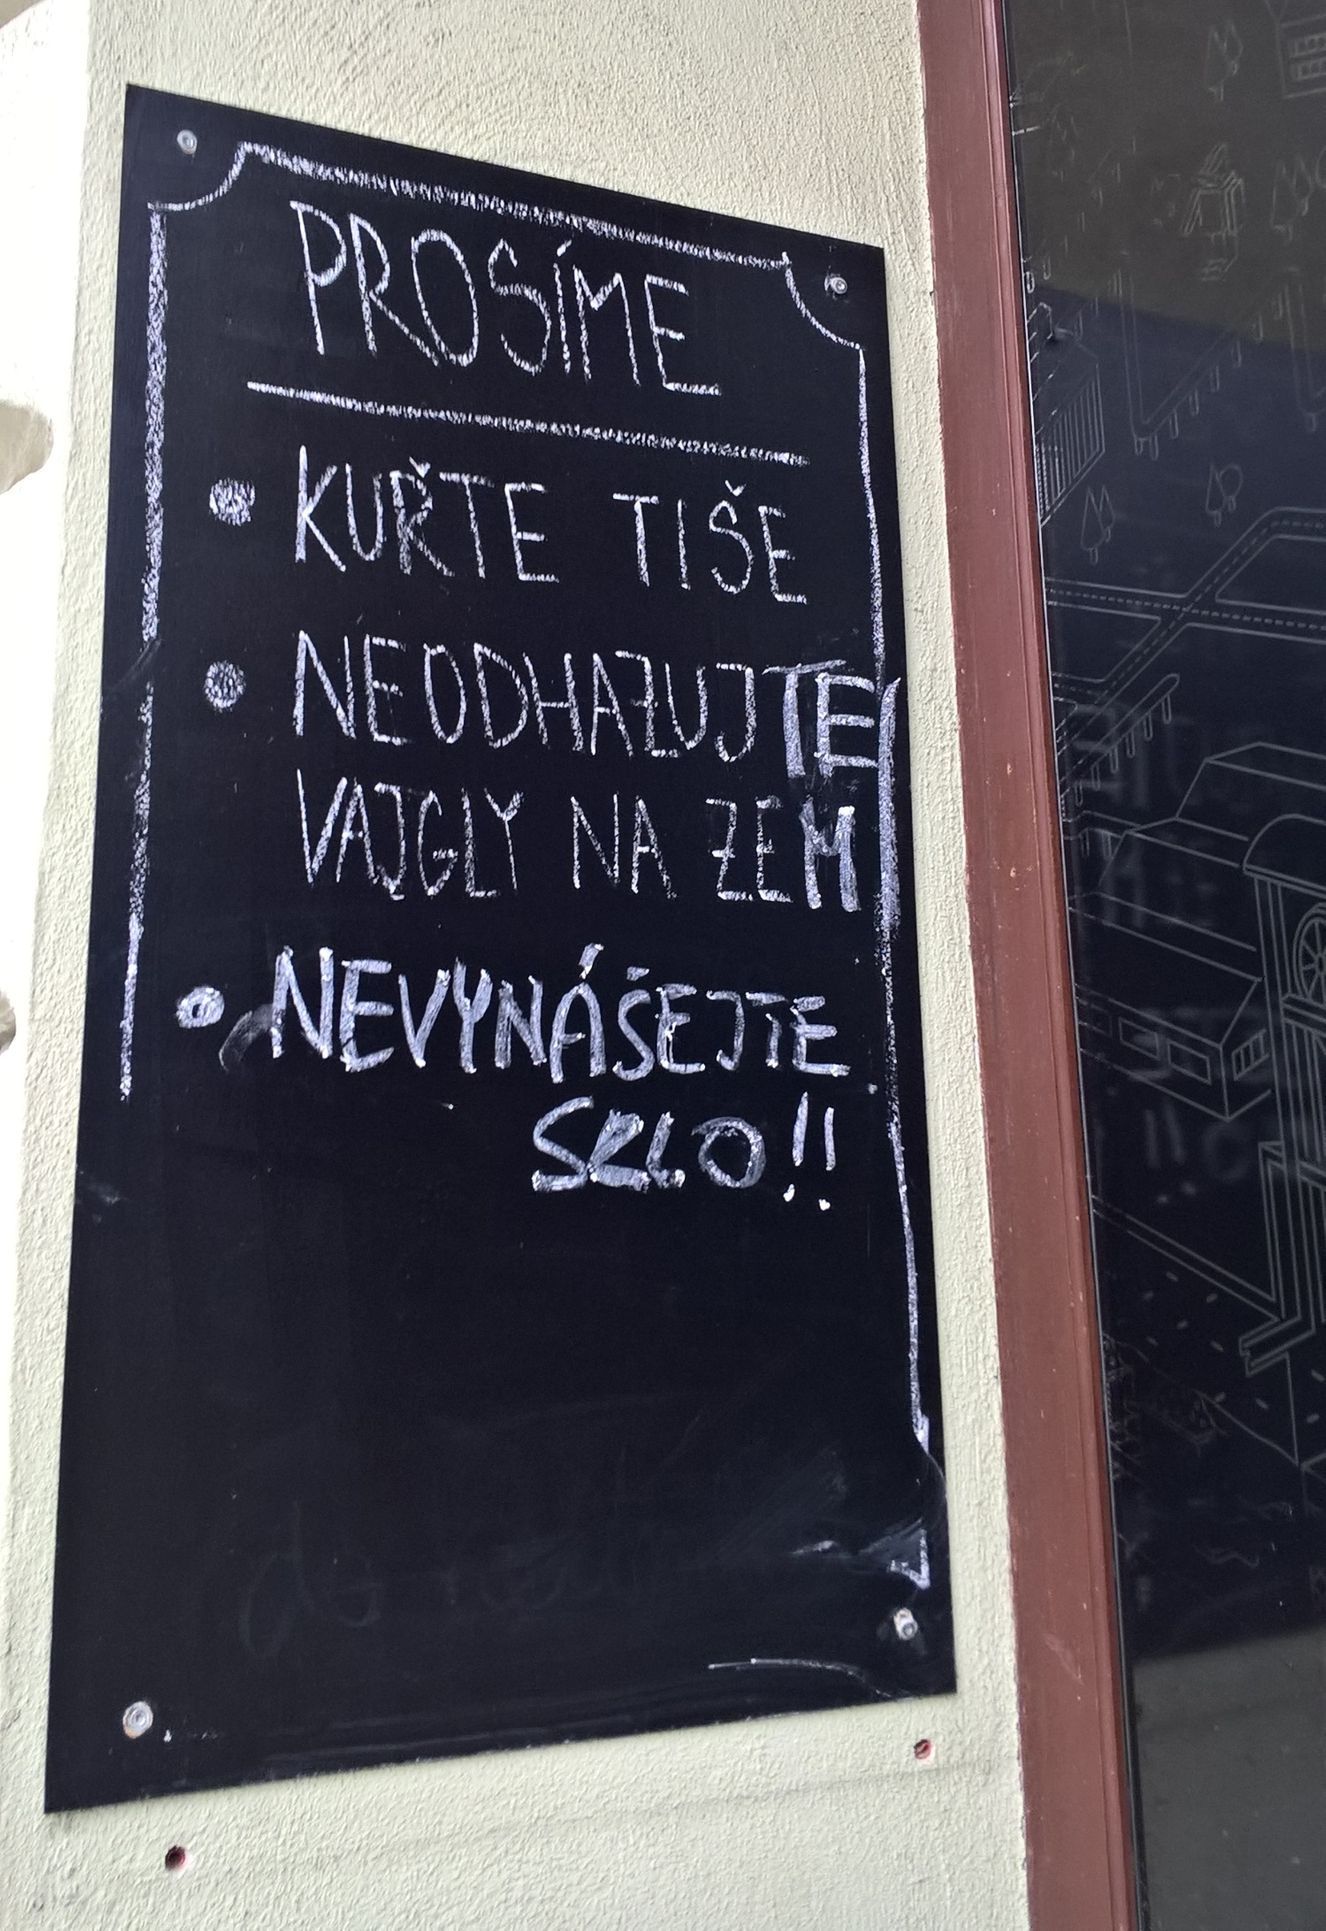 PROSÍME
• KUŘTE TIŠE
• NEODHAZUJTE
VAJGLY NA ZEM
• NEVYNÁŠEJTE
SKLO!!